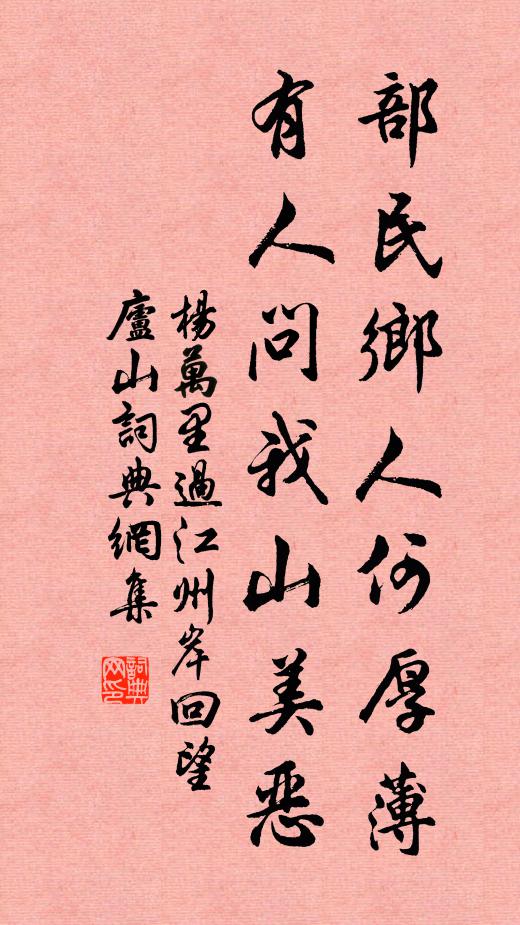 部民鄉人何厚薄
有人問我山美惡
楊萬里過江州岸回望
廬山詞典網集
詞典
网印